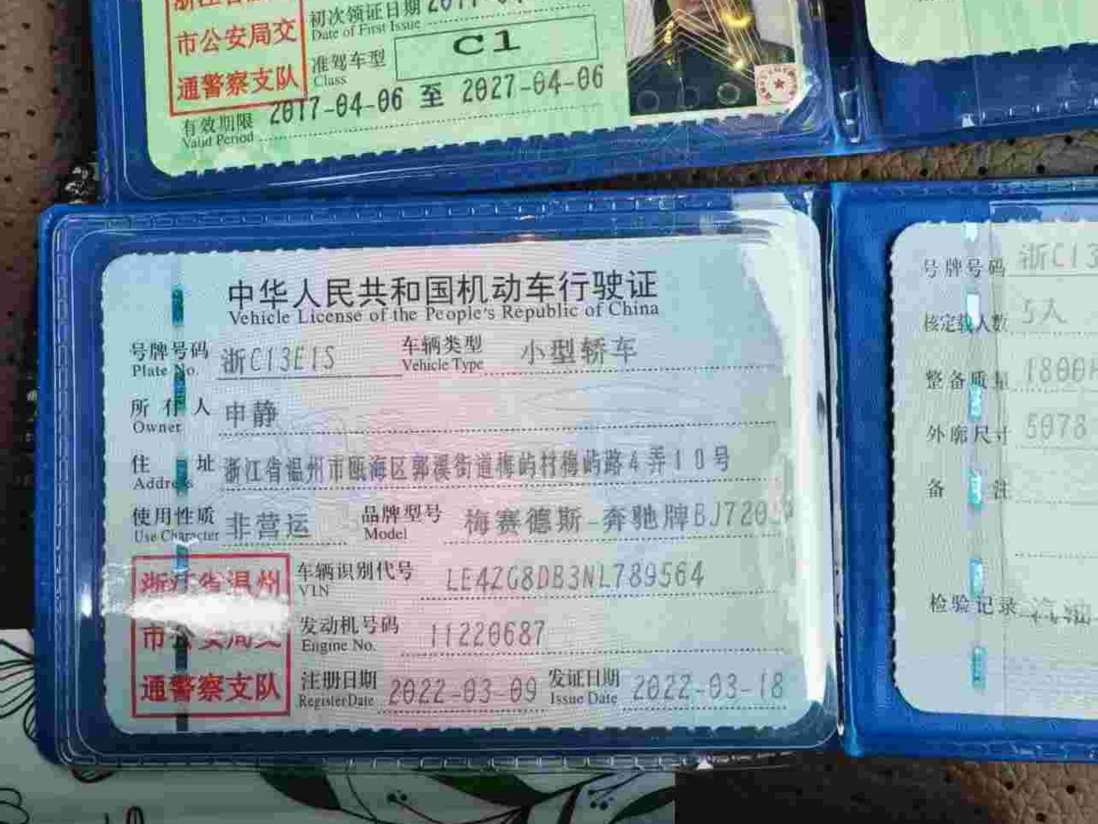 初次领证日期
Date of First Issue
市公安局交
准驾车型
Class
C1
通警察支队
2017-04-06 至 2027-04-06
有效期限
Valid Period
中华人民共和国机动车行驶证
Vehicle License of the People's Republic of China
号牌号码 浙C13E1S 车辆类型 小型轿车
Plate No. Vehicle Type
所有人 申静
Owner
住址 浙江省温州市瓯海区郭溪街道梅屿村梅屿路4弄10号
Address
使用性质 非营运 品牌型号 梅赛德斯-奔驰牌BJ720
Use Character Model
浙江省温州
市公安局交
通警察支队
车辆识别代号 LE4ZG8DB3NL789564
VIN
发动机号码 11220687
Engine No.
注册日期 2022-03-09 发证日期 2022-03-18
Register Date Issue Date
号牌号码 浙C13
核定载人数 5人
整备质量 1800
外廓尺寸 5078
备注
检验记录 汽油